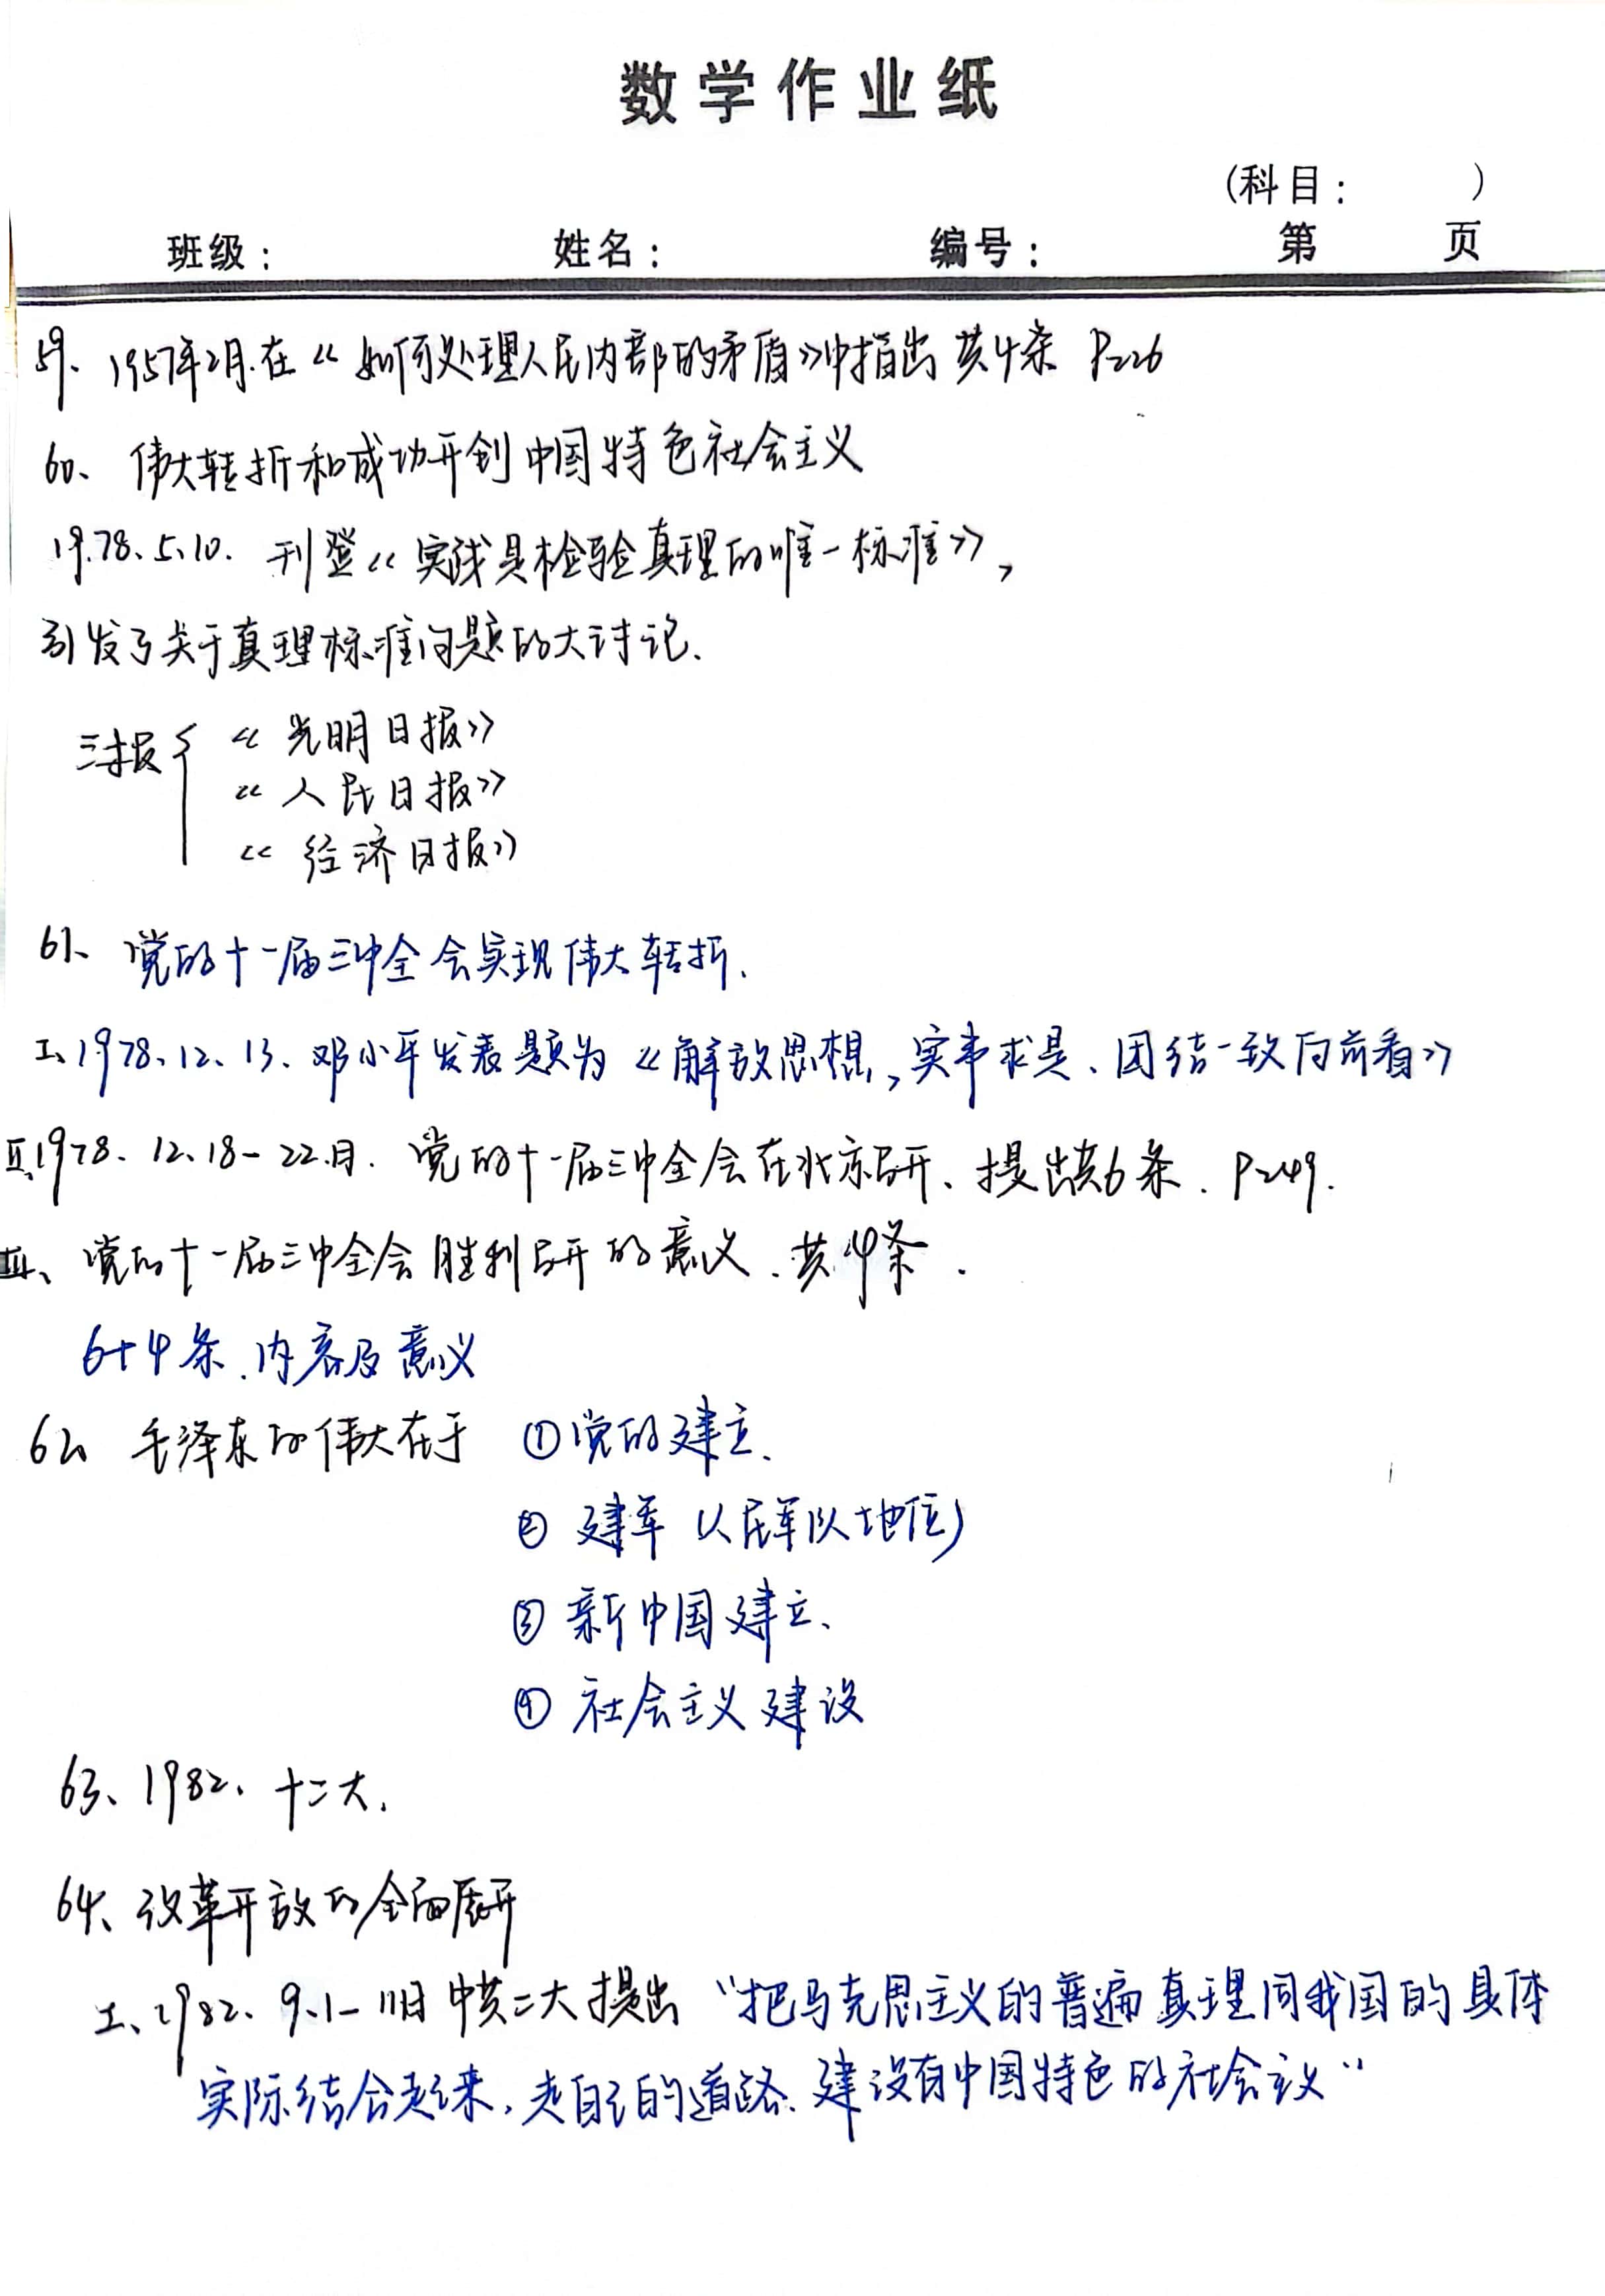 数学作业纸
(科目: )
班级: 姓名: 编号: 第 页
59、1957年2月.在《如何处理人民内部的矛盾》中指出 共4条 P226
60、伟大转折和成功开创中国特色社会主义
1978、5、10. 刊登《实践是检验真理的唯一标准》,
引发了关于真理标准问题的大讨论.
三报{《光明日报》
《人民日报》
《经济日报》
61、党的十一届三中全会实现伟大转折.
I、1978、12、13、邓小平发表题为《解放思想,实事求是、团结一致向前看》
II、1978、12、18-22日. 党的十一届三中全会在北京召开、提出共6条. P249.
III、党的十一届三中全会胜利召开的意义、共4条.
6+4条.内容及意义
62、毛泽东的伟大在于 ①党的建立、
② 建军(人民军队地位)
③ 新中国建立、
④ 社会主义建设
63、1982、十二大.
64、改革开放的全面展开
I、1982、9.1-11日 中共十二大提出“把马克思主义的普遍真理同我国的具体
实际结合起来,走自己的道路、建设有中国特色的社会主义“